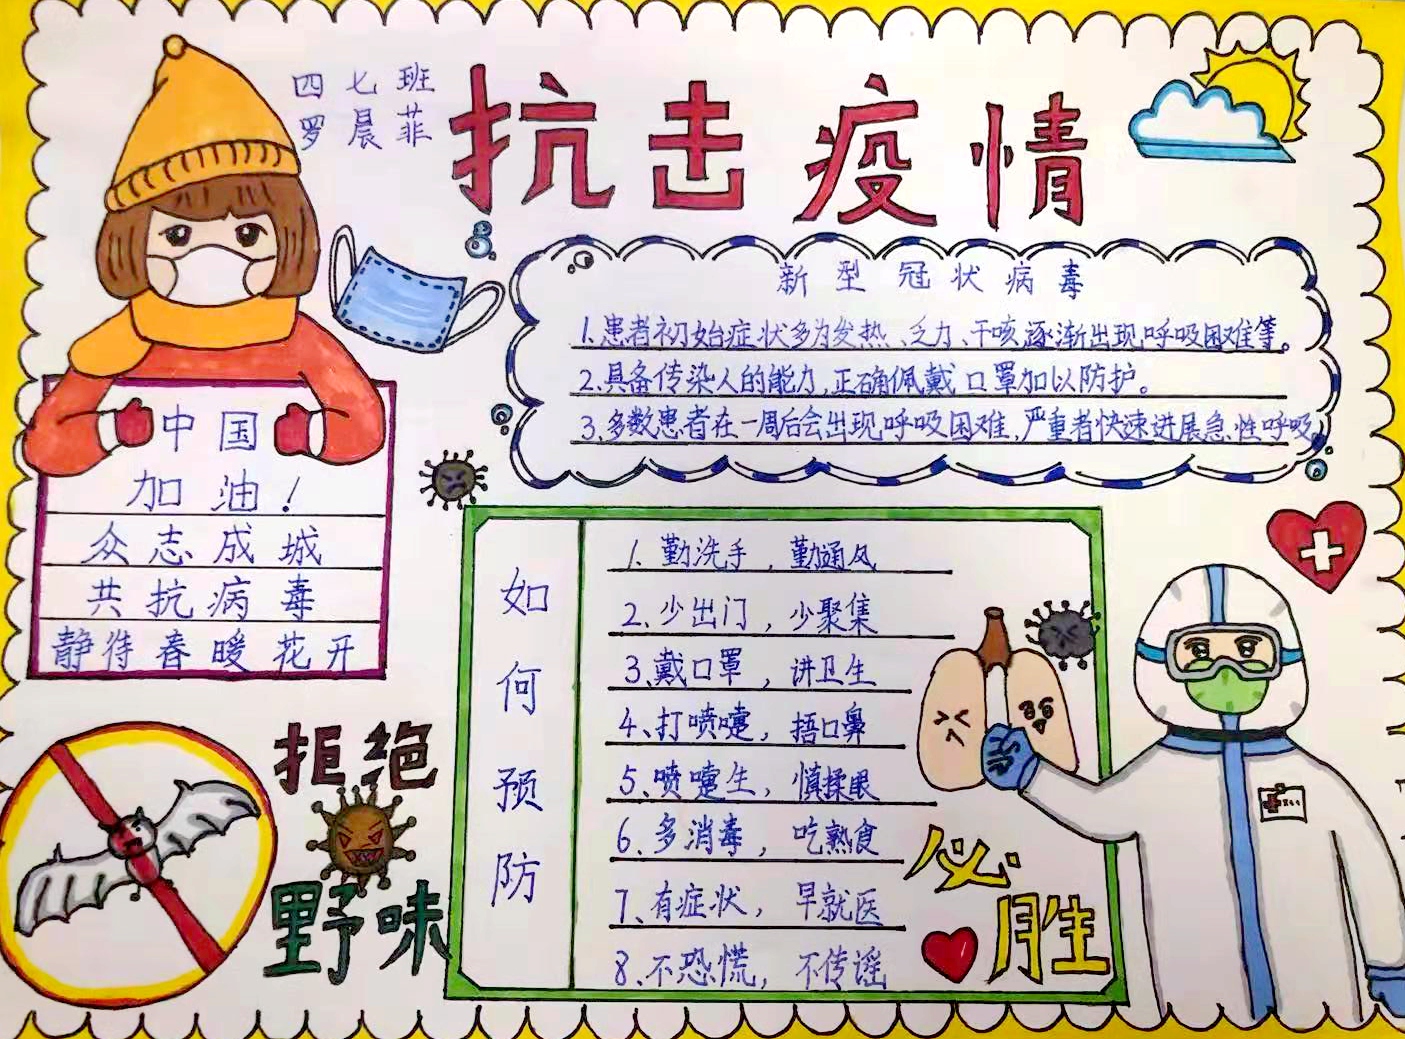 四七班
罗晨菲
抗击疫情
新型冠状病毒
1.患者初始症状多为发热、乏力、干咳,逐渐出现呼吸困难等。
2.具备传染人的能力,正确佩戴口罩加以防护。
3.多数患者在一周后会出现呼吸困难,严重者快速进展急性呼吸
中国
加油!
众志成城
共抗病毒
静待春暖花开
如何预防
1.勤洗手,勤通风
2.少出门,少聚集
3、戴口罩,讲卫生
4、打喷嚏,捂口鼻
5、喷嚏生,慎揉眼
6、多消毒,吃熟食
7、有症状,早就医
8、不恐慌,不传谣
拒绝
野味
必胜